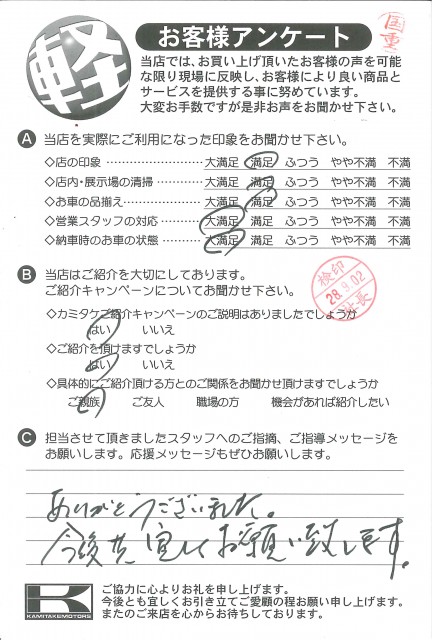 軽
お客様アンケート
国重
当店では、お買い上げ頂いたお客様の声を可能
な限り現場に反映し、お客様により良い商品と
サービスを提供する事に努めています。
大変お手数ですが是非お声をお聞かせ下さい。
A 当店を実際にご利用になった印象をお聞かせ下さい。
◇店の印象 ……………………… 大満足 満足 ふつう やや不満 不満
◇店内・展示場の清掃 ………… 大満足 満足 ふつう やや不満 不満
◇お車の品揃え ………………… 大満足 満足 ふつう やや不満 不満
◇営業スタッフの対応 ………… 大満足 満足 ふつう やや不満 不満
◇納車時のお車の状態 ………… 大満足 満足 ふつう やや不満 不満
B 当店はご紹介を大切にしております。
ご紹介キャンペーンについてお聞かせ下さい。
検印
28.9.02
社長
◇カミタケご紹介キャンペーンのご説明はありましたでしょうか
はい いいえ
◇ご紹介を頂けますでしょうか
はい いいえ
◇具体的にご紹介頂ける方とのご関係をお聞かせ頂けますでしょうか
ご親族 ご友人 職場の方 機会があれば紹介したい
C 担当させて頂きましたスタッフへのご指摘、ご指導メッセージを
お願いします。応援メッセージもぜひお願いします。
ありがとうございました。
今後共宜しくお願い致します。
K
KAMITAKEMOTORS
ご協力に心よりお礼を申し上げます。
今後とも宜しくお引き立てご愛顧の程お願い申し上げます。
またのご来店を心からお待ちしております。